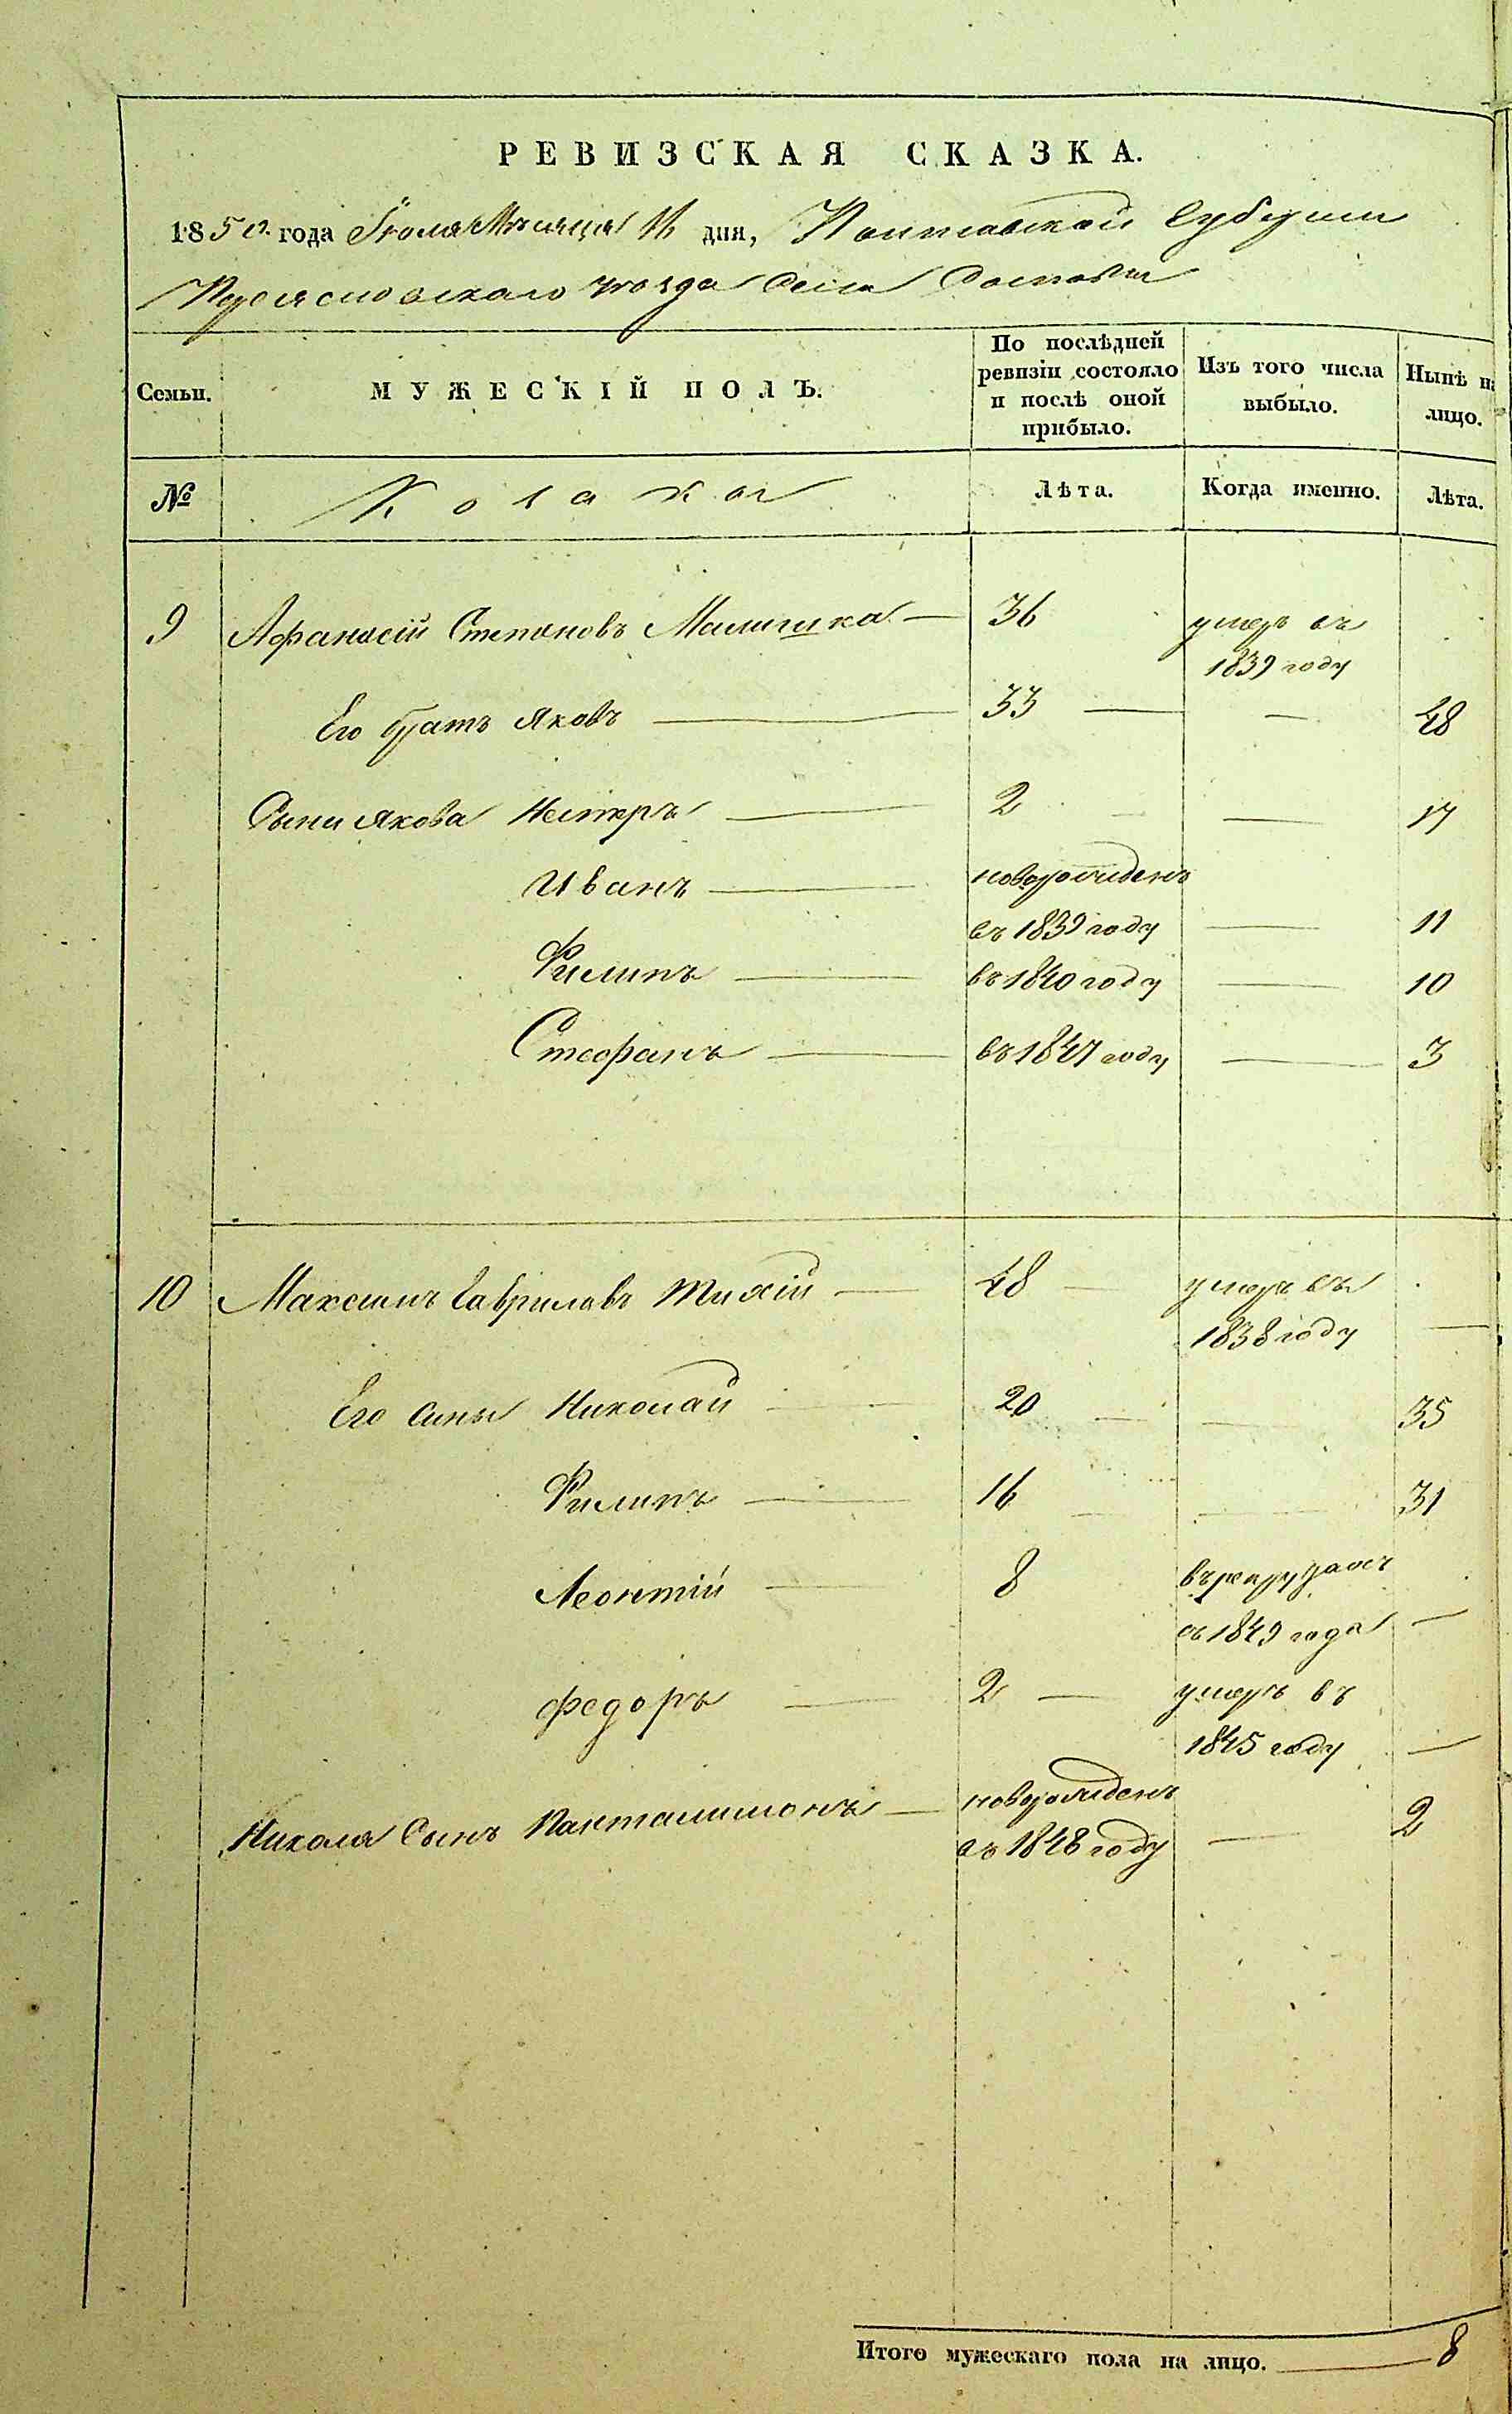 РЕВИЗСКАЯ СКАЗКА.
1850 года Іюля Мѣсяца дня, Полтавской Губерніи
Переяславского уѣзда Села
Семьи.
МУЖЕСКІЙ ПОЛЪ.
По послѣдней ревизіи состояло и послѣ оной прибыло.
Изъ того числа выбыло.
Нынѣ на лицо.
№
Козаки
Лѣта.
Когда именно.
Лѣта.
9 Афанасій Степановъ Малишка — 36 умеръ въ
1839 году
Его братъ Яковъ — 33 — — 48
Сыни Якова Нестеръ — 2 — 17
Иванъ — новорожденъ
въ 1839 году — 11
Филипъ — въ 1840 году — 10
Стефанъ — въ 1847 году — 3
10 Максимъ Гавриловъ Тихій — 48 — умеръ въ
1838 году —
Его сины Николай — 20 — — 35
Филипъ — 16 — — 31
Леонтій — 8 въ рекрутахъ
съ 1849 года —
Федоръ — 2 — умеръ въ
1845 году —
Николая Сынъ Панталимонъ — новорожденъ
въ 1848 году — 2
Итого мужескаго пола на лицо. — 8